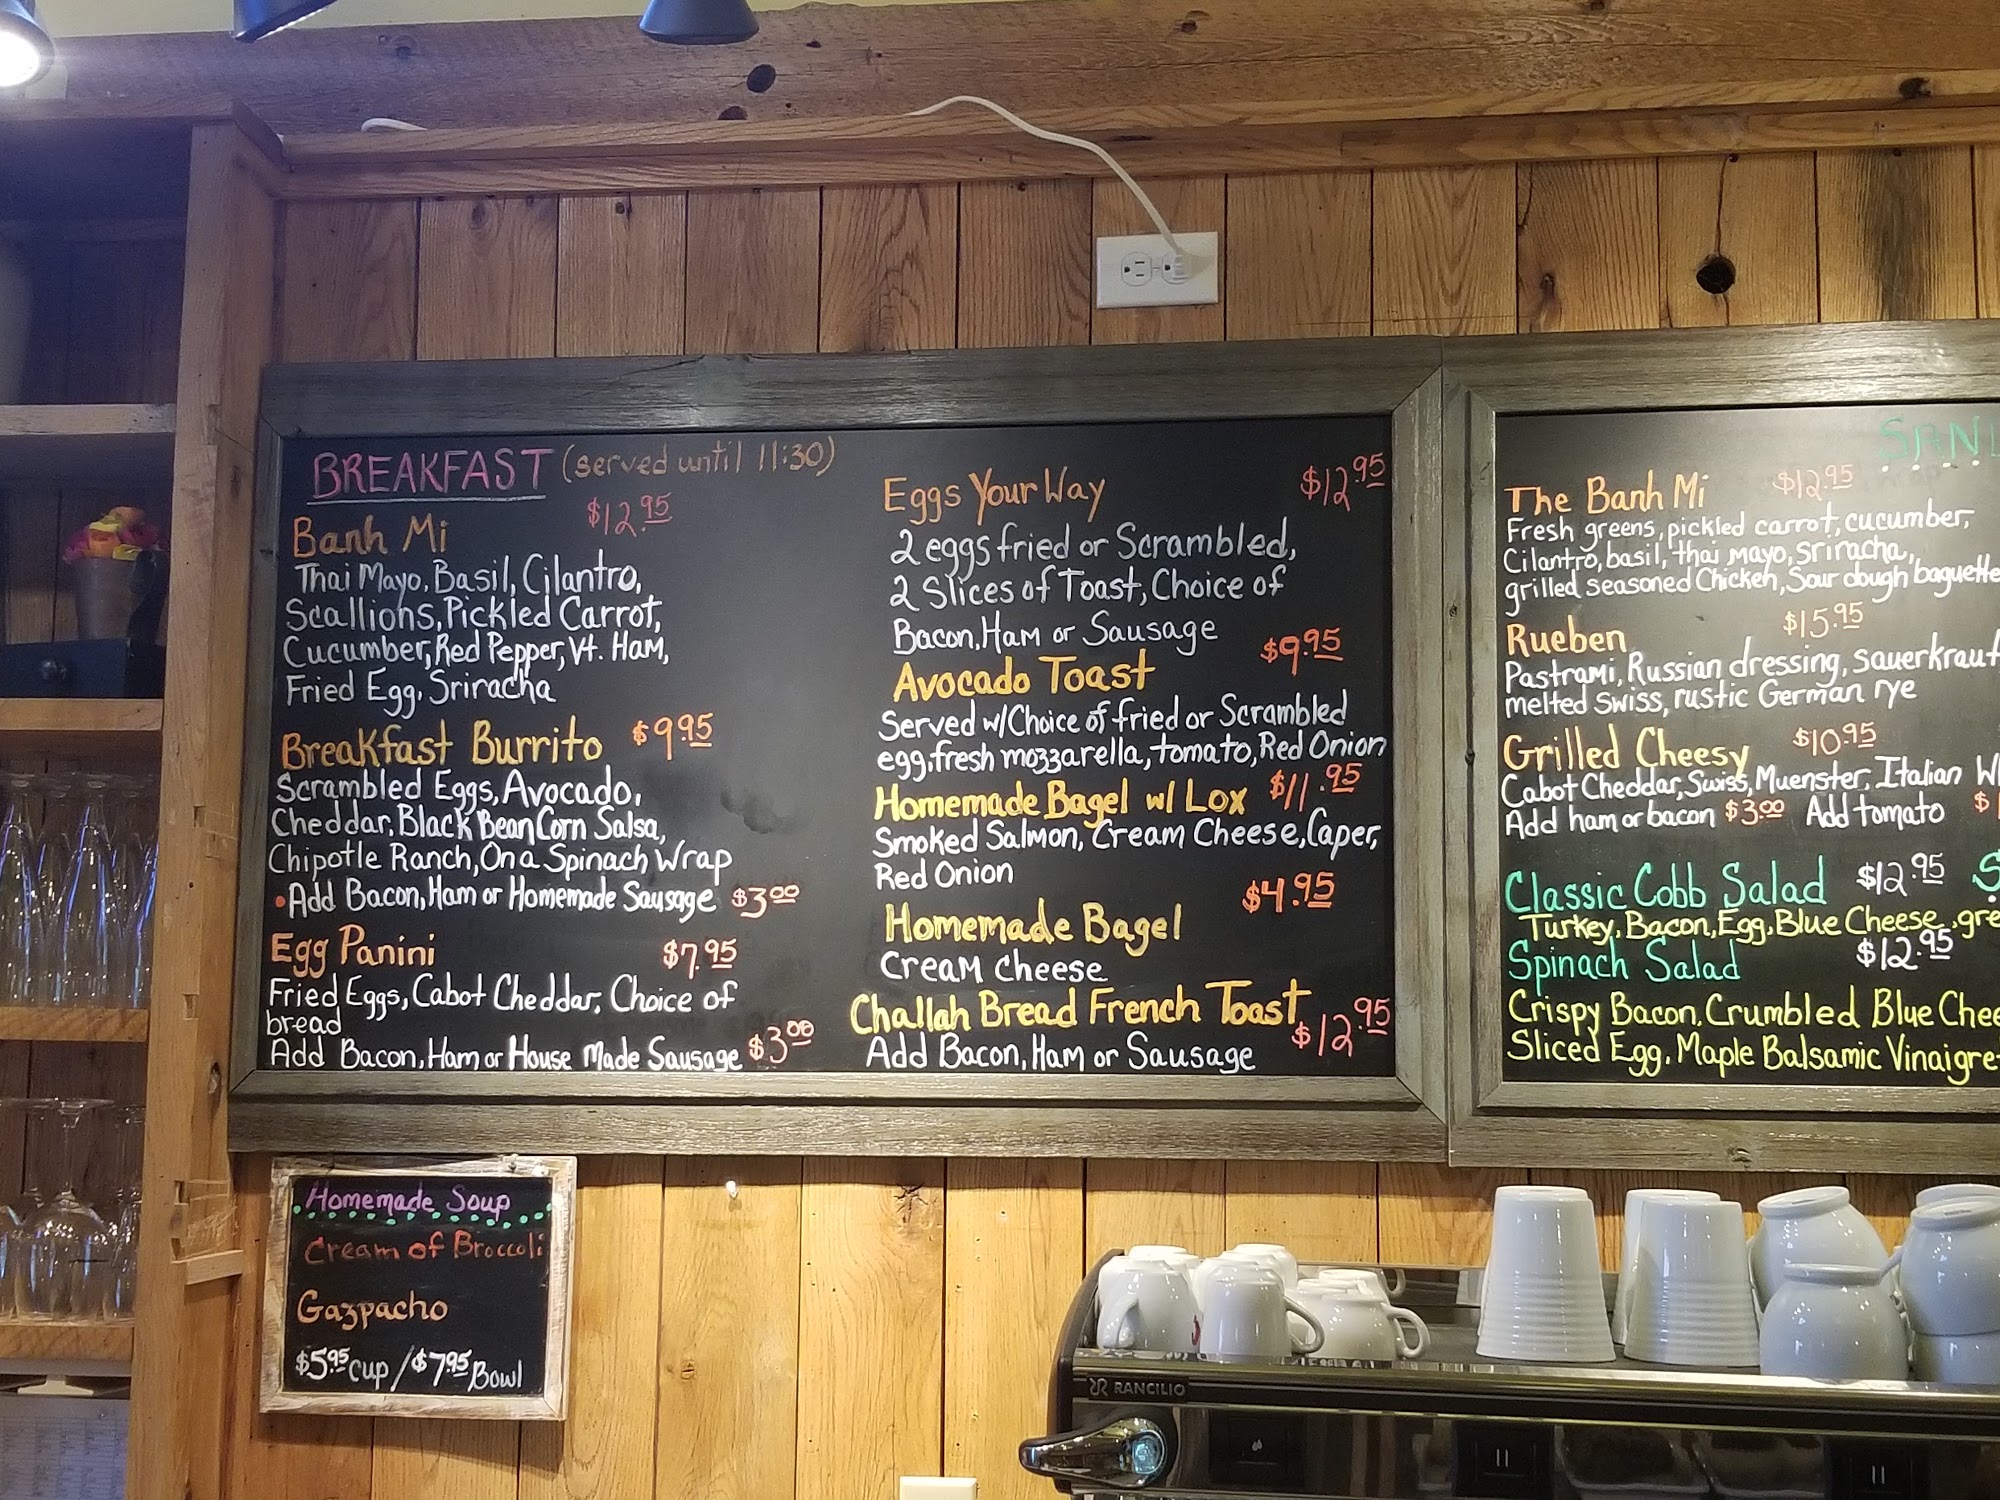 BREAKFAST (served until 11:30)
Banh Mi $12.95
Thai Mayo, Basil, Cilantro,
Scallions, Pickled Carrot,
Cucumber, Red Pepper, Vt. Ham,
Fried Egg, Sriracha
Breakfast Burrito $9.95
Scrambled Eggs, Avocado,
Cheddar, Black Bean Corn Salsa,
Chipotle Ranch, On a Spinach Wrap
•Add Bacon, Ham or Homemade Sausage $3.00
Egg Panini $7.95
Fried Eggs, Cabot Cheddar, Choice of
bread
Add Bacon, Ham or House Made Sausage $3.00
Eggs Your Way $12.95
2 eggs fried or Scrambled,
2 Slices of Toast, Choice of
Bacon, Ham or Sausage
Avocado Toast $9.95
Served w/Choice of fried or Scrambled
egg, fresh mozzarella, tomato, Red Onion
Homemade Bagel w/ Lox $11.95
Smoked Salmon, Cream Cheese, Caper,
Red Onion
Homemade Bagel $4.95
Cream Cheese
Challah Bread French Toast $12.95
Add Bacon, Ham or Sausage
The Banh Mi $12.95
Fresh greens, pickled carrot, cucumber,
Cilantro, basil, thai mayo, sriracha,
grilled seasoned Chicken, Sour dough baguette
Rueben $15.95
Pastrami, Russian dressing, sauerkraut
melted swiss, rustic German rye
Grilled Cheesy $10.95
Cabot Cheddar, Swiss, Muenster, Italian
Add ham or bacon $3.00 Add tomato $
Classic Cobb Salad $12.95
Turkey, Bacon, Egg, Blue Cheese, gre
Spinach Salad $12.95
Crispy Bacon, Crumbled Blue Chee
Sliced Egg, Maple Balsamic Vinaigre
Homemade Soup
Cream of Broccoli
Gazpacho
$5.95 cup / $7.95 Bowl
RANCILIO